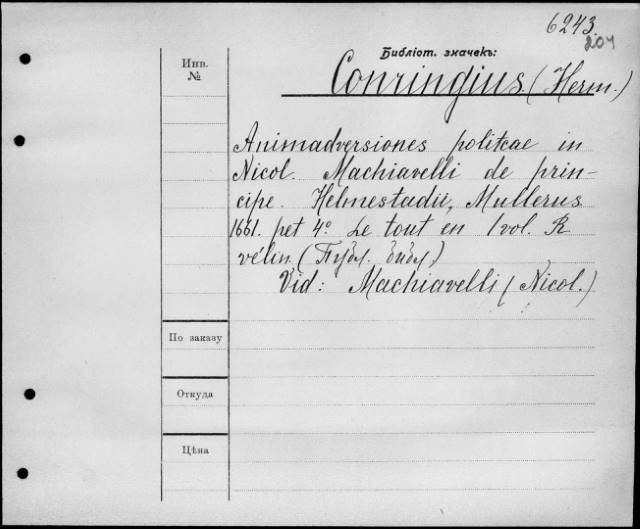 6243
204
Библіот. значекъ:
Инв.
№
Conringius (Herm.)
Animadversiones politcae in
Nicol. Machiavelli de prin-
cipe. Helmestadii, Mullerus
1661. pet 4º. Le tout en 1 vol. R
vélin. (Публ. библ.)
Vid: Machiavelli (Nicol.)
По заказу
Откуда
Цѣна